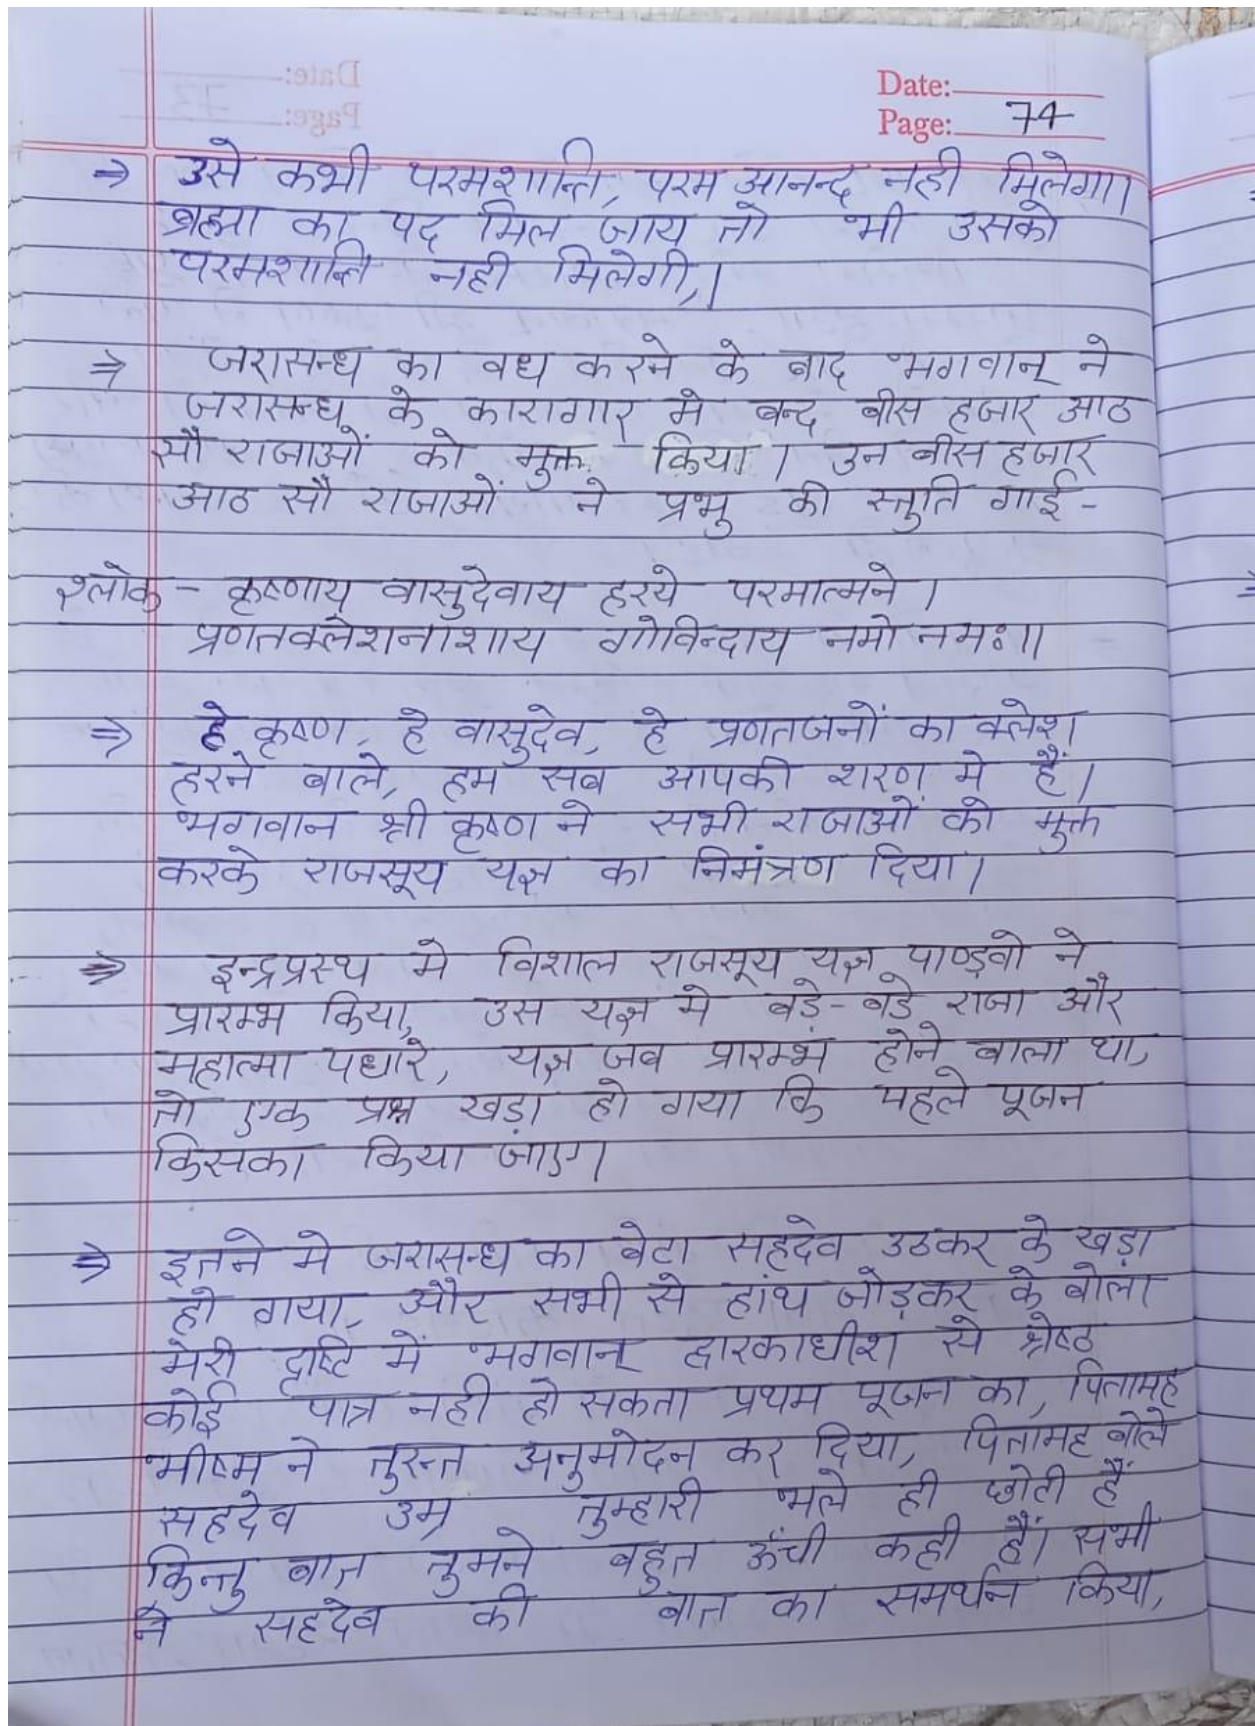 Date:
Page: 74
⇒ उसे कभी परमशान्ति, परम आनन्द नही मिलेगा।
ब्रह्मा का पद मिल जाय तो भी उसको
परमशान्ति नही मिलेगी,।
⇒ जरासन्ध का वध करने के बाद भगवान् ने
जरासन्ध के कारागार मे बन्द बीस हजार आठ
सौ राजाओं को मुक्त किया। उन बीस हजार
आठ सौ राजाओं ने प्रभु की स्तुति गाई-
श्लोक - कृष्णाय वासुदेवाय हरये परमात्मने।
प्रणतक्लेशनाशाय गोविन्दाय नमो नमः॥
⇒ हे कृष्ण, हे वासुदेव, हे प्रणतजनों का क्लेश
हरने बाले, हम सब आपकी शरण मे हैं।
भगवान श्री कृष्ण ने सभी राजाओं को मुक्त
करके राजसूय यज्ञ का निमंत्रण दिया।
⇒ इन्द्रप्रस्थ मे विशाल राजसूय यज्ञ पाण्ड़वो ने
प्रारम्भ किया, उस यज्ञ मे बडे़-बडे़ राजा और
महात्मा पधारे, यज्ञ जब प्रारम्भ होने बाला था,
तो एक प्रश्न खड़ा हो गया कि पहले पूजन
किसका किया जाए।
⇒ इतने मे जरासन्ध का बेटा सहदेव उठकर के खड़ा
हो गया, और सभी से हांथ जोड़कर के बोला
मेरी दृष्टि में भगवान् द्वारकाधीश से श्रेष्ठ
कोई पात्र नही हो सकता प्रथम पूजन का, पितामह
भीष्म ने तुरन्त अनुमोदन कर दिया, पितामह बोले
सहदेव उम्र तुम्हारी भले ही छोटी हैं
किन्तु बात तुमने बहुत ऊँची कही हैं। सभी
ने सहदेव की बात का समर्थन किया,